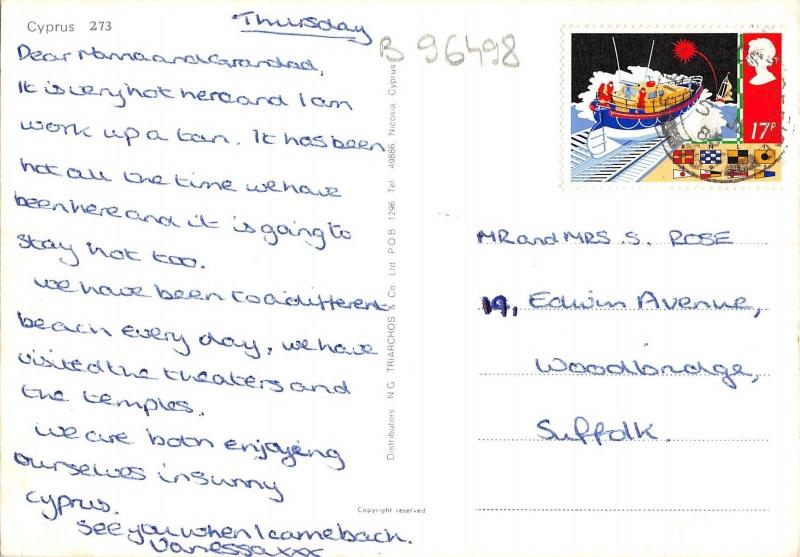 Cyprus 273
Thursday
B 96498
Dear Nanna and Grandad,
It is very hot here and I am
work up a tan. It has been
hot all the time we have
been here and it is going to
stay hot too.
we have been to a different
beach every day, we have
visited the theaters and
the temples.
we are both enjoying
ourselves in sunny
cyprus.
See you when I come back.
Vanessa xxx
Distributors N.G. TRIARCHOS & Co. Ltd P.O.B. 1296 Tel 49886, Nicosia, Cyprus
Copyright reserved
17P
MR and MRS S. ROSE
19, Edwin Avenue,
Woodbridge,
Suffolk.